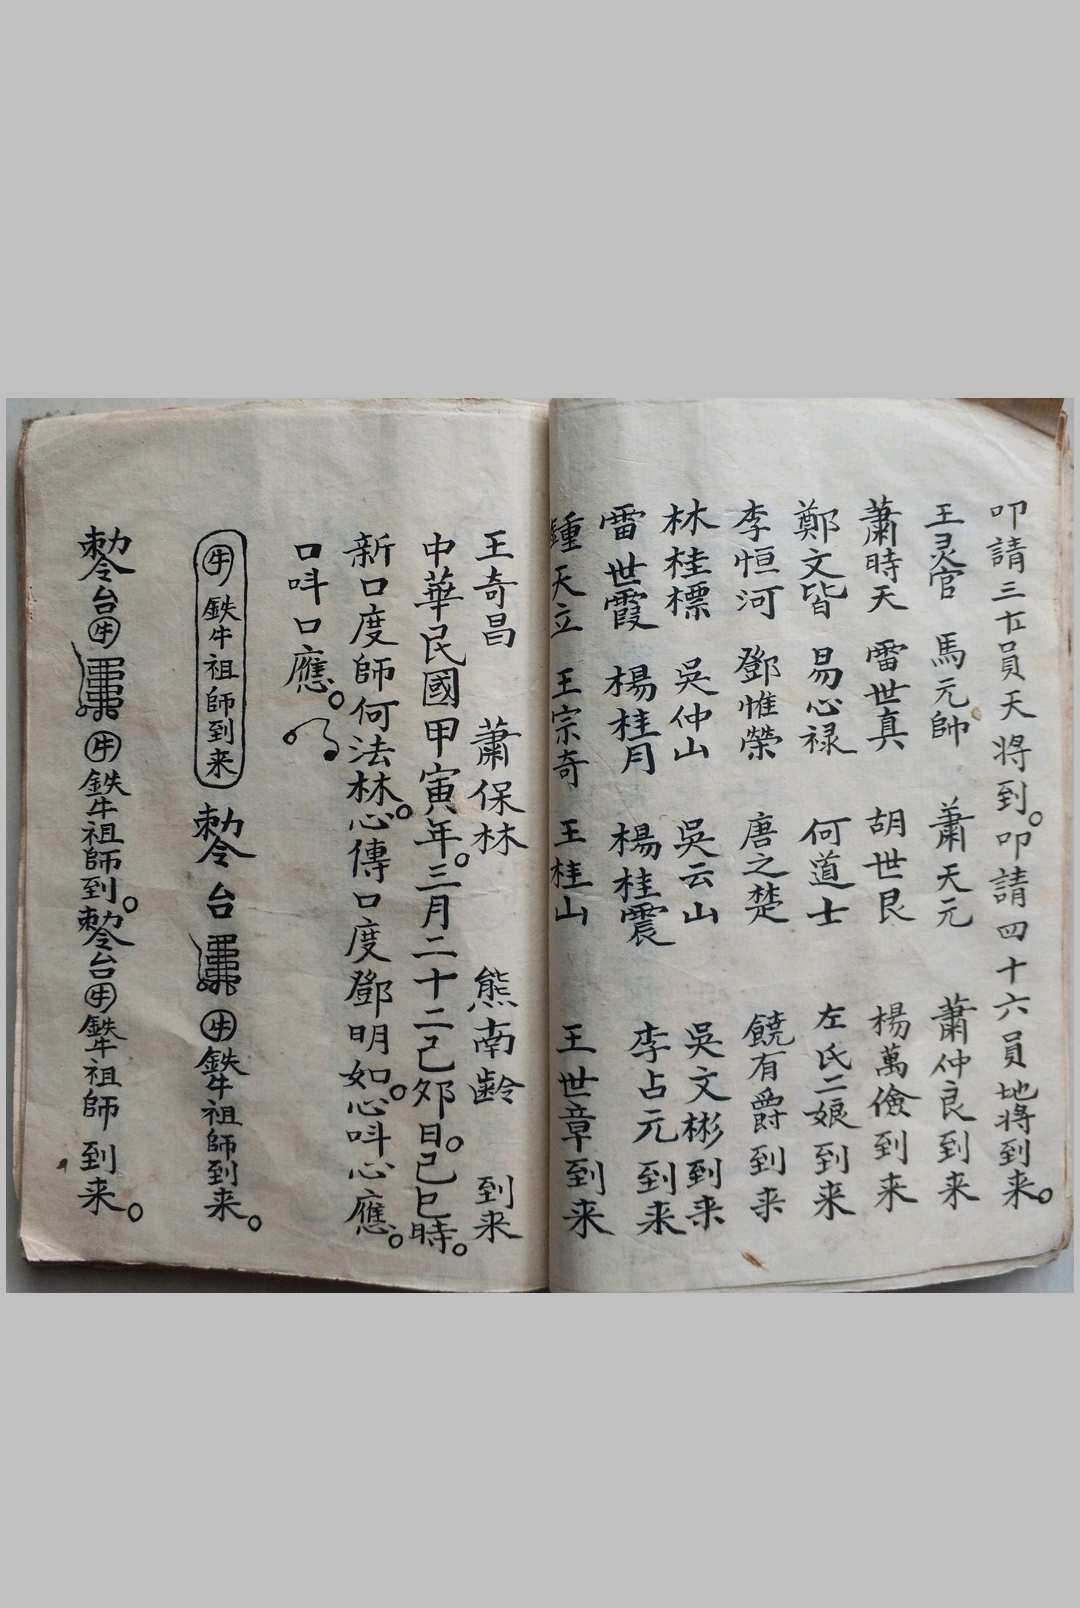 叩請三十五員天將到。叩請四十六員地將到來。
王灵官 馬元帥 蕭天元 蕭仲良到来
蕭時天 雷世真 胡世艮 楊萬儉到来
鄭文皆 易心禄 何道士 左氏二娘到来
李恒河 鄧惟榮 唐之楚 饒有爵到来
林桂標 吳仲山 吳云山 吳文彬到来
雷世霞 楊桂月 楊桂震 李占元到来
鍾天立 王宗奇 王桂山 王世章到来
王奇昌 蕭保林 熊南齡 到来
中華民國甲寅年。三月二十二己夘日。己巳時。
新口度師何法林。心傳口度鄧明如。心呌心應。
口呌口應。
牛 鉄牛祖師到来 勅令台 牛鉄牛祖師到来。
勅令台牛 牛鉄牛祖師到。勅令台牛鉄牛祖師到来。